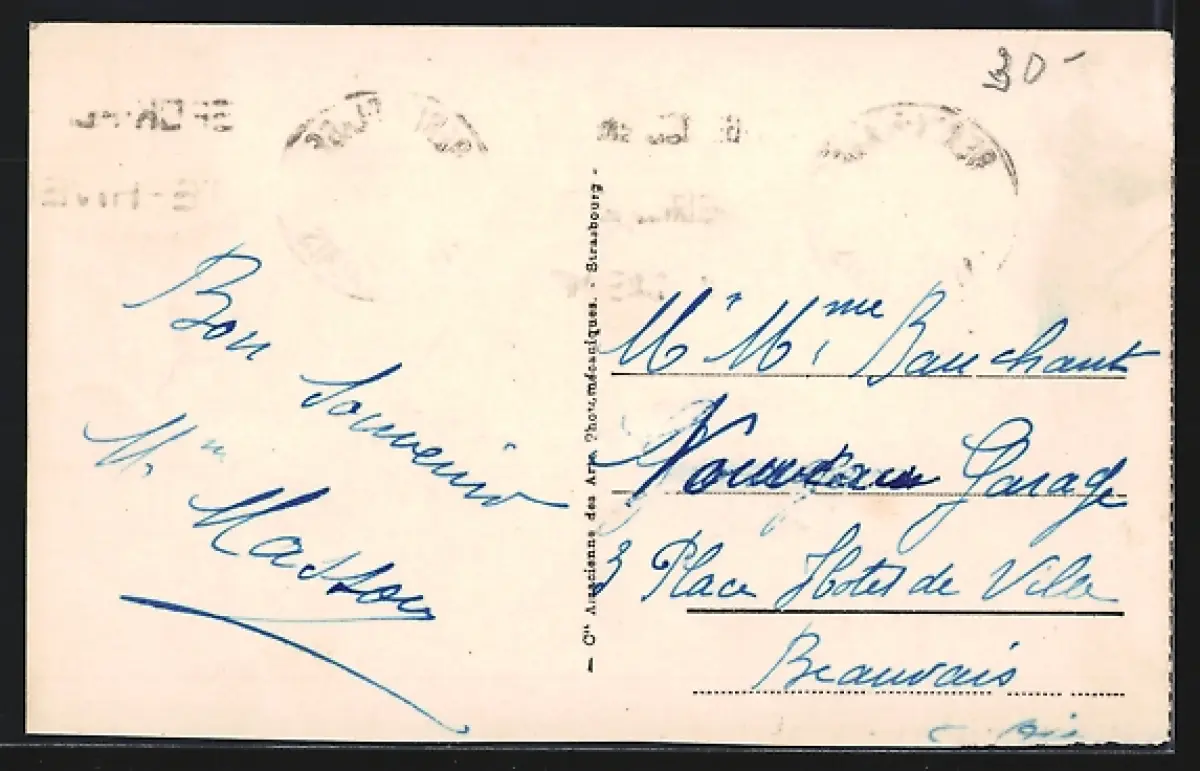 30-
Bon
Souvenir
Mm Masson
— Cie Alsacienne des Arts Photomécaniques. - Strasbourg -
Mr Mme Bauchant
Nouveau Garage
3 Place Hotel de Ville
Beauvais